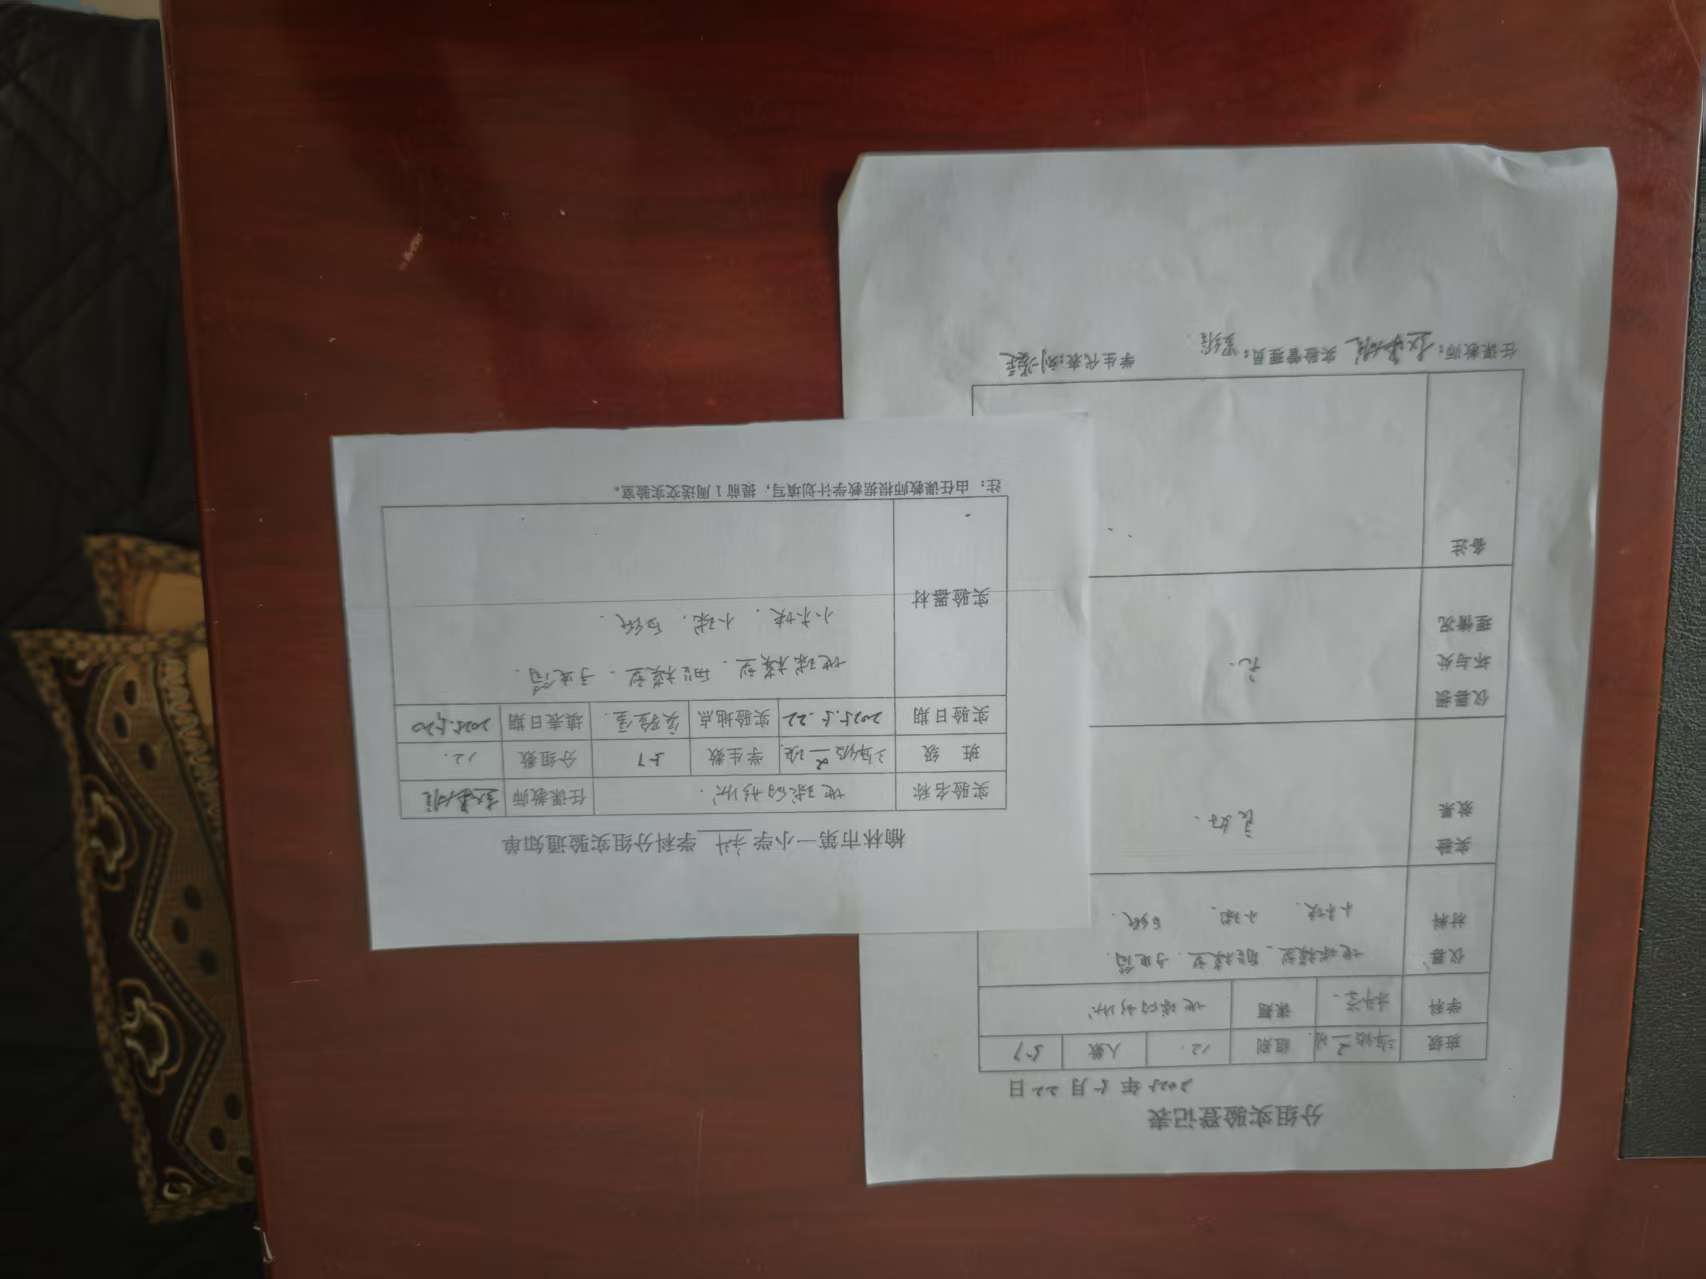 榆林市第一小学 科 学科分组实验通知单
实验名称 地球的形状. 任课教师
班 级 三年级二班 学生数 57 分组数 12.
实验日期 2025.5.22 实验地点 实验室. 填表日期 2025.5.20
实验器材
地球模型. 船模型. 子
小木块. 小球. 白纸.
注：由任课教师根据教学计划填写，提前1周送交实验室。
分组实验登记表
2025年5月22日
班级 三年级二班 组别 12. 人数 57
学科 科学. 课题 地球的形状
仪器、材料
地球模型. 船模型.
小木块. 小球. 白纸.
实验效果
良好.
仪器损坏与处理情况
无.
备注
任课教师： 实验管理员： 学生代表：刘